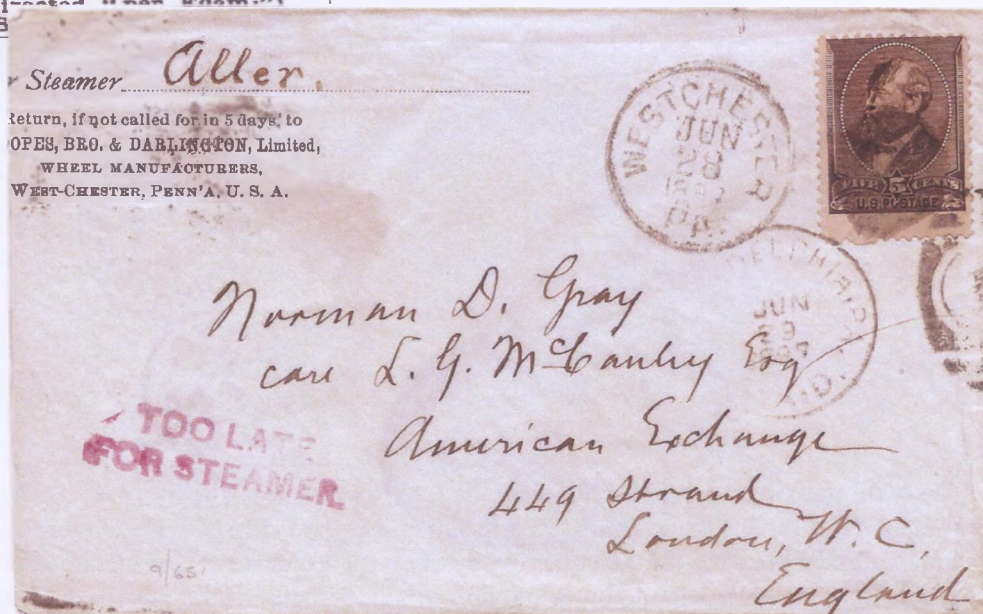 Steamer Aller.
Return, if not called for in 5 days, to
OPES, BRO. & DARLINGTON, Limited,
WHEEL MANUFACTURERS,
WEST-CHESTER, PENN'A, U. S. A.
WESTCHESTER
JUN
28
PA.
FIVE 5 CENTS
U.S. POSTAGE
ELPHIA, PA.
JUN
29
Norman D. Gray
care L. G. McCauley Esq
American Exchange
449 Strand
London, W. C,
England
TOO LATE
FOR STEAMER.
9/65